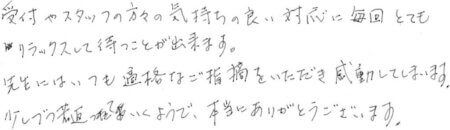 受付やスタッフの方々の気持ちの良い対応に毎回とても
リラックスして待つことが出来ます。
先生にはいつも適格なご指摘をいただき感動してしまいます。
少しづつ若返っていくようで、本当にありがとうございます。